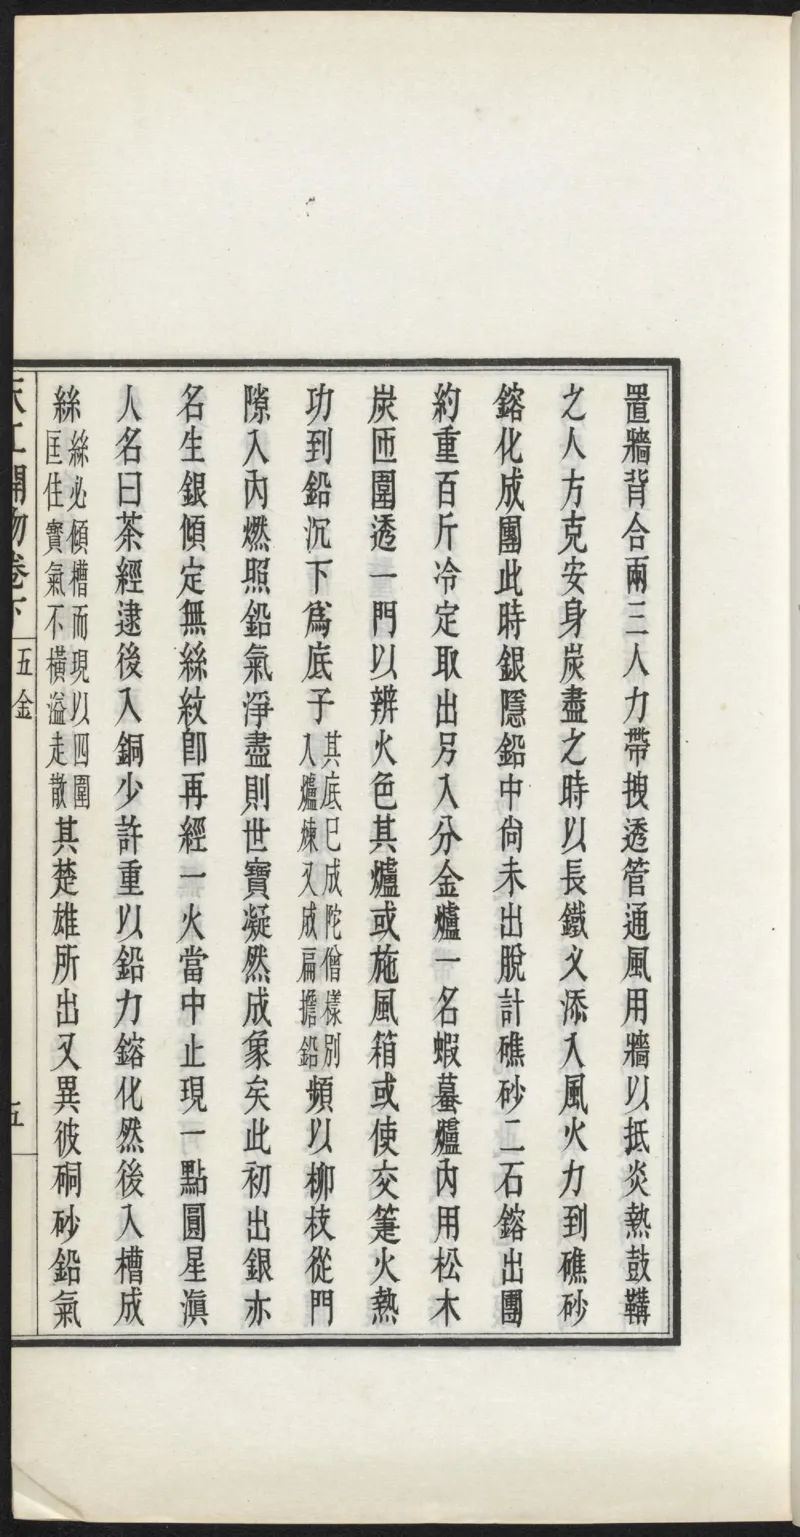 置牆背合兩三人力帶拽透管通風用牆以抵炎熱鼓鞲
之人方克安身炭盡之時以長鐵叉添入風火力到礁砂
鎔化成團此時銀隱鉛中尚未出脫計礁砂二石鎔出團
約重百斤冷定取出另入分金爐一名蝦蟇爐內用松木
炭匝圍透一門以辨火色其爐或施風箱或使交箑火熱
功到鉛沉下爲底子其底已成陀僧樣別入爐煉又成扁擔鉛頻以柳枝從門
隙入內燃照鉛氣淨盡則世寶凝然成象矣此初出銀亦
名生銀傾定無絲紋卽再經一火當中止現一點圓星滇
人名曰茶經逮後入銅少許重以鉛力鎔化然後入槽成
絲絲必傾槽而現以四圍匡住寶氣不橫溢走散其楚雄所出又異彼硐砂鉛氣
天工開物卷下 五金 五